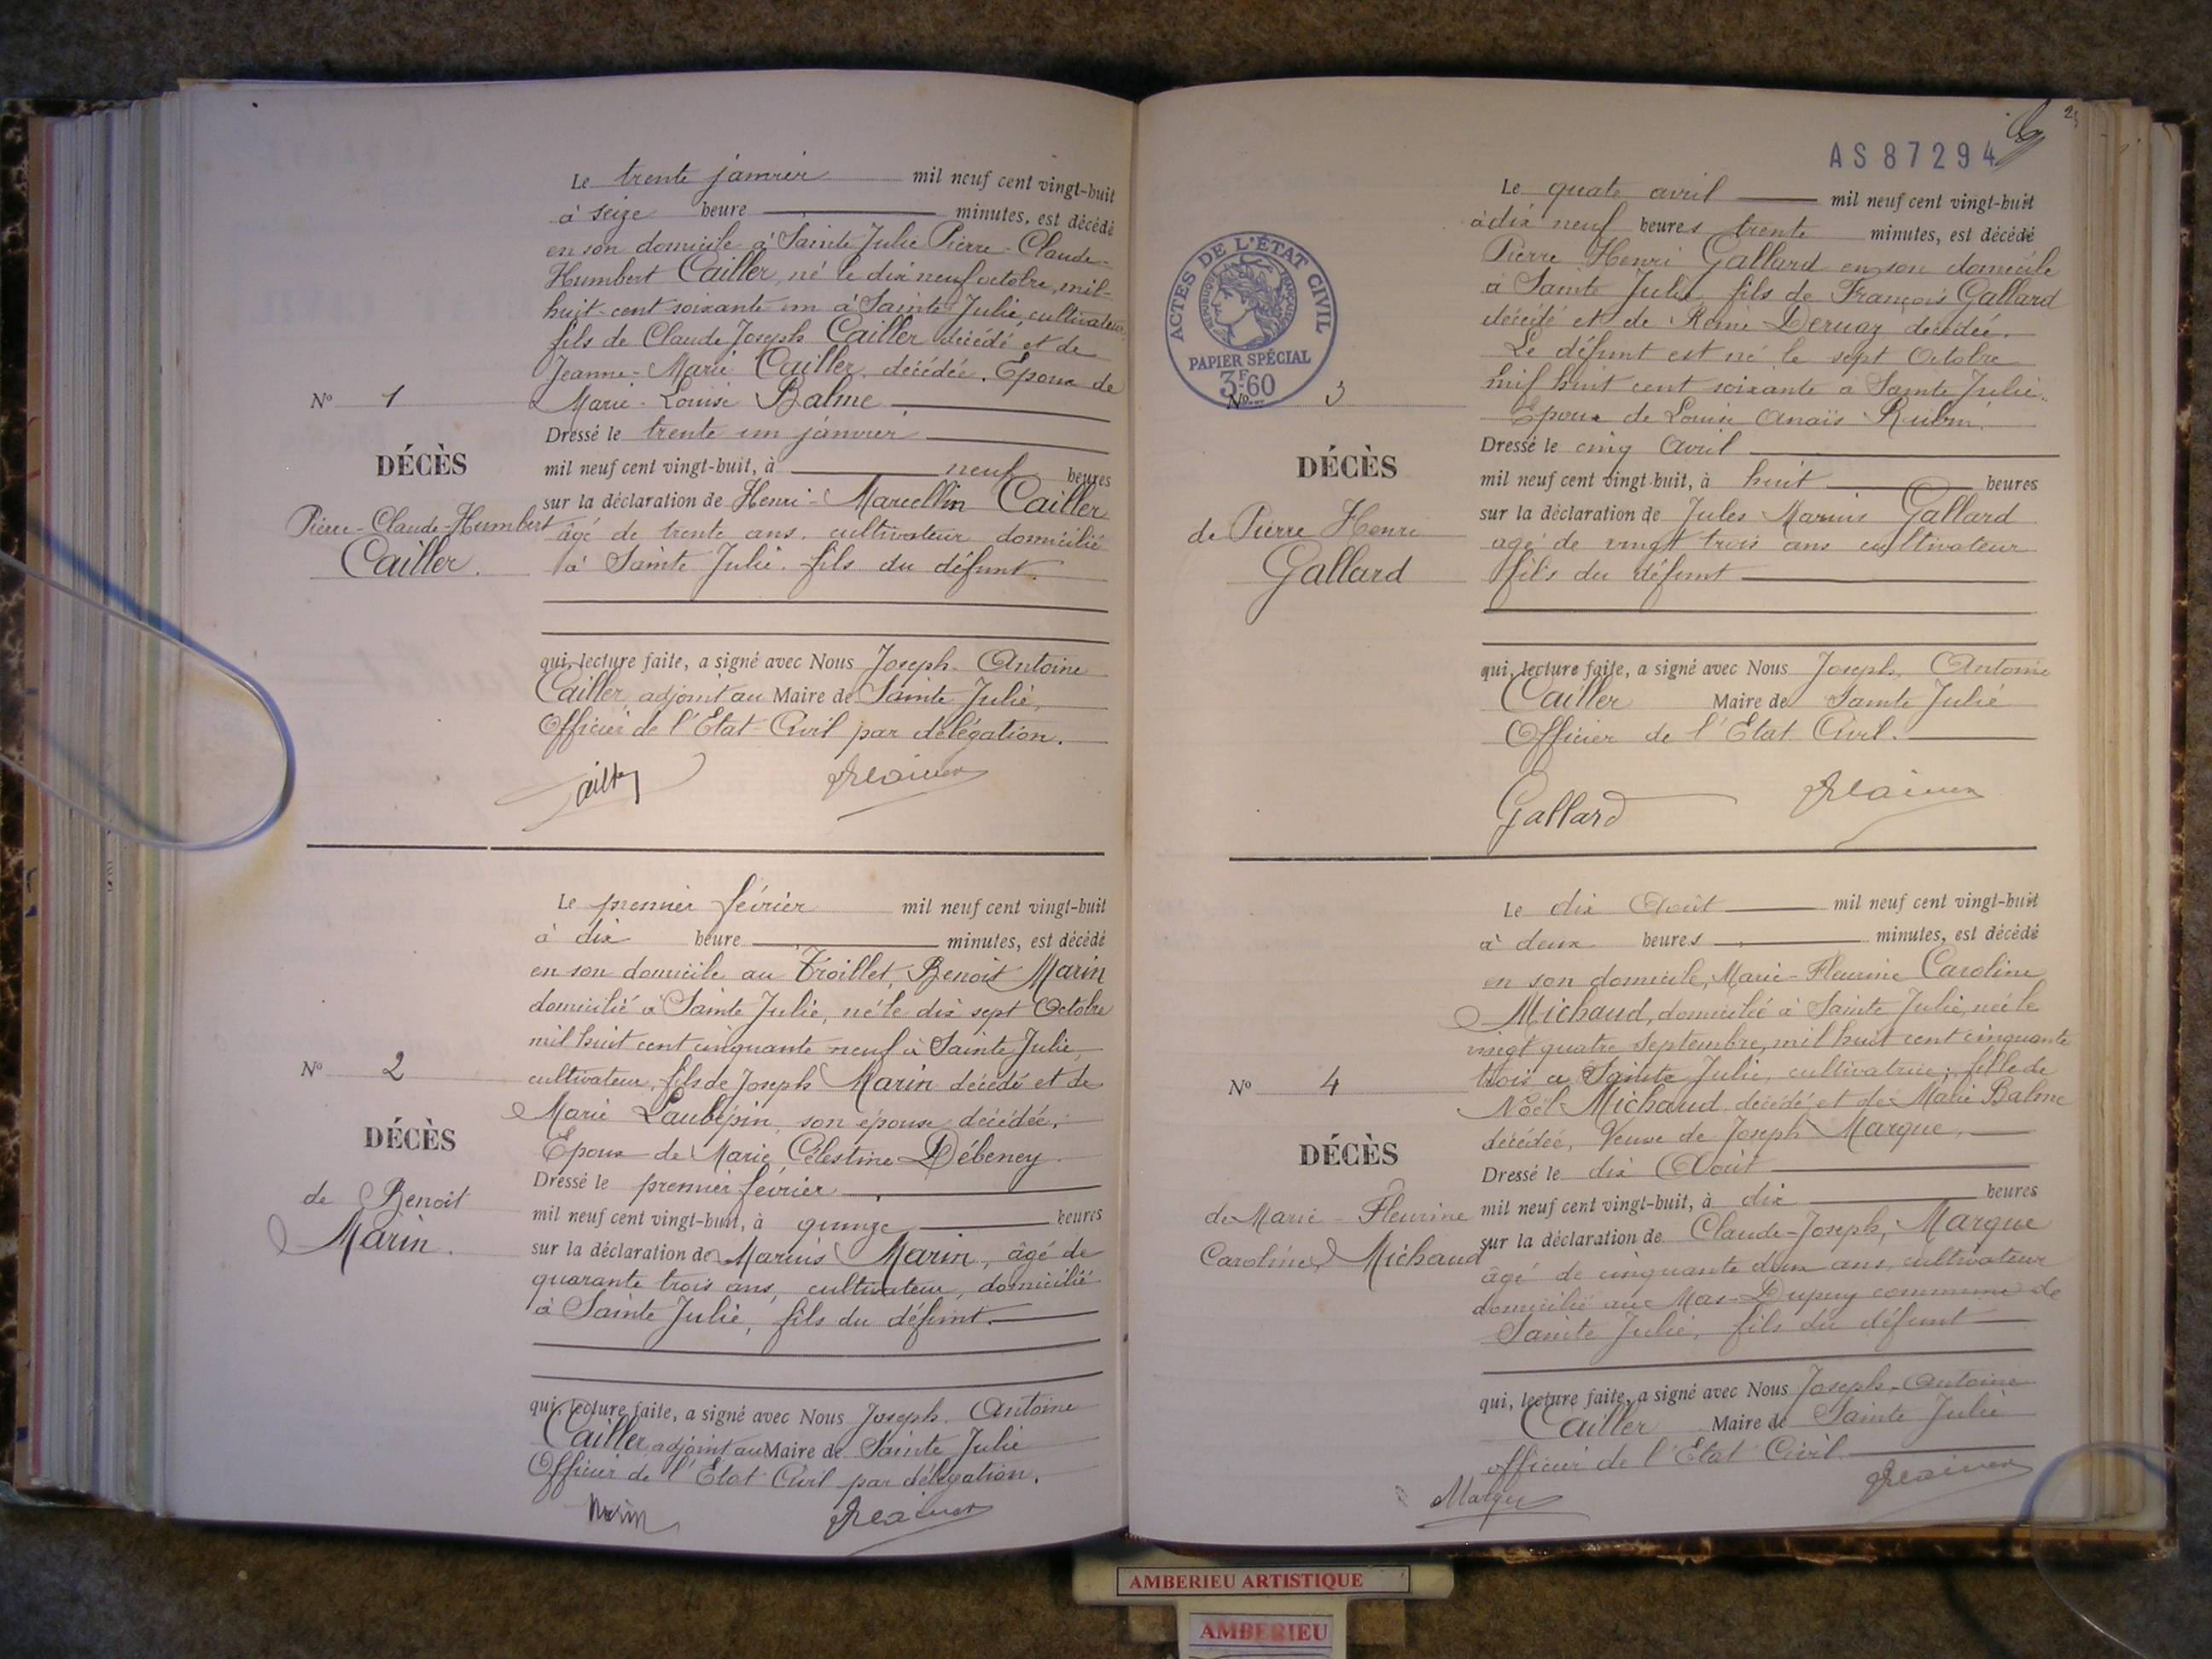 Le trente janvier mil neuf cent vingt-huit
à seize heure minutes, est décédé
en son domicile à Sainte Julie Pierre-Claude-
Humbert Cailler, né le dix neuf octobre, mil-
huit-cent soixante un à Sainte Julie, cultivateur,
fils de Claude Joseph Cailler décédé et de
Jeanne-Marie Cailler, décédée. Epoux de
Marie-Louise Balme.
Dressé le trente un janvier
mil neuf cent vingt-huit, à neuf heures
sur la déclaration de Henri-Marcellin Cailler
âgé de trente ans, cultivateur domicilié
à Sainte Julie, fils du défunt.
qui, lecture faite, a signé avec Nous Joseph Antoine
Cailler, adjoint au Maire de Sainte Julie,
Officier de l'Etat-Civil par délégation.
N° 1
DÉCÈS
Pierre-Claude-Humbert
Cailler.
Le premier février mil neuf cent vingt-huit
à dix heure minutes, est décédé
en son domicile au Troillet, Benoit Marin
domicilié à Sainte Julie, né le dix sept Octobre
mil huit cent cinquante neuf à Sainte Julie,
cultivateur, fils de Joseph Marin décédé et de
Marie Laubépin, son épouse décédée,
Epoux de Marie Célestine Débeney
Dressé le premier février
mil neuf cent vingt-huit, à quinze heures
sur la déclaration de Marius Marin, âgé de
quarante trois ans, cultivateur, domicilié
à Sainte Julie, fils du défunt.
qui, lecture faite, a signé avec Nous Joseph Antoine
Cailler adjoint au Maire de Sainte Julie
Officier de l'Etat Civil par délégation.
Marin
N° 2
DÉCÈS
de Benoit
Marin.
AS 87294
ACTES DE L'ÉTAT CIVIL
RÉPUBLIQUE FRANÇAISE
PAPIER SPÉCIAL
3F.60
Le quate avril mil neuf cent vingt-huit
à dix neuf heures trente minutes, est décédé
Pierre Henri Gallard en son domicile
à Sainte Julie, fils de François Gallard
décédé et de Reine Deruaz décédée.
Le défunt est né le sept Octobre
mil huit cent soixante a Sainte Julie.
Epoux de Louise Anaïs
Dressé le cinq Avril
mil neuf cent vingt-huit, à huit heures
sur la déclaration de Jules Marius Gallard
agé de vingt trois ans cultivateur
fils du défunt
qui, lecture faite, a signé avec Nous Joseph Antoine
Cailler Maire de Sainte Julie
Officier de l'Etat Civil.
Gallard
N° 3
DÉCÈS
de Pierre Henri
Gallard
Le dix Août mil neuf cent vingt-huit
à deux heures minutes, est décédé
en son domicile, Marie-Fleurine Caroline
Michaud, domicilié à Sainte Julie, née le
vingt quatre Septembre, mil huit cent cinquante
trois a Sainte Julie, cultivatrice; fille de
Noël Michaud décédé et de Marie Balme
décédée, Veuve de Joseph Marque,
Dressé le dix Août
mil neuf cent vingt-huit, à dix heures
sur la déclaration de Claude-Joseph, Marque
âgé de cinquante deux ans, cultivateur
domicilié au Mas-Dupuy commune de
Sainte Julie, fils du défunt
qui, lecture faite, a signé avec Nous Joseph-Antoine
Cailler Maire de Sainte Julie
officier de l'Etat Civil
N° 4
DÉCÈS
de Marie-Fleurine
Caroline Michaud
AMBERIEU ARTISTIQUE
AMBERIEU